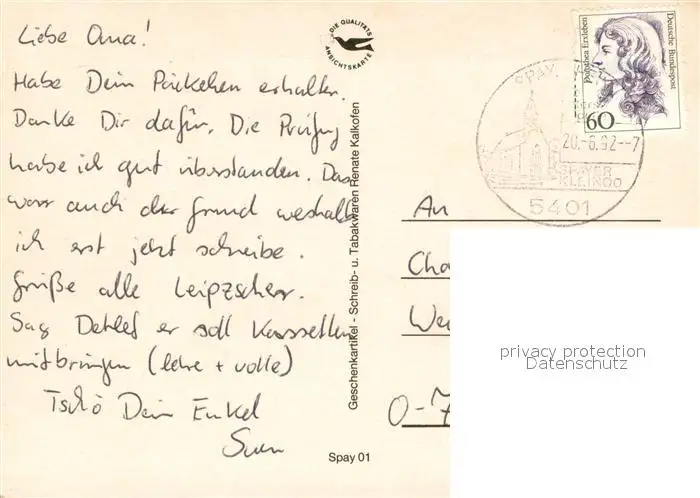 Liebe Oma!
Habe Dein Päckchen erhalten.
Danke Dir dafür. Die Prüfung
habe ich gut überstanden. Das
war auch der Grund weshalb
ich erst jetzt schreibe.
Grüße alle Leipziger.
Sag Dehlef er soll Kassetten
mitbringen (leere + volle)
Tschö Dein Enkel
Sven
DIE QUALITÄTS
ANSICHTSKARTE
Geschenkartikel - Schreib- u. Tabakwaren Renate Kalkofen
Spay 01
Dorothea Erxleben
Deutsche Bundespost
60
SPAY
20.-6.92--7
SPAYER
KLEINOD
5401
An
Cha
We
O-7
privacy protection
Datenschutz